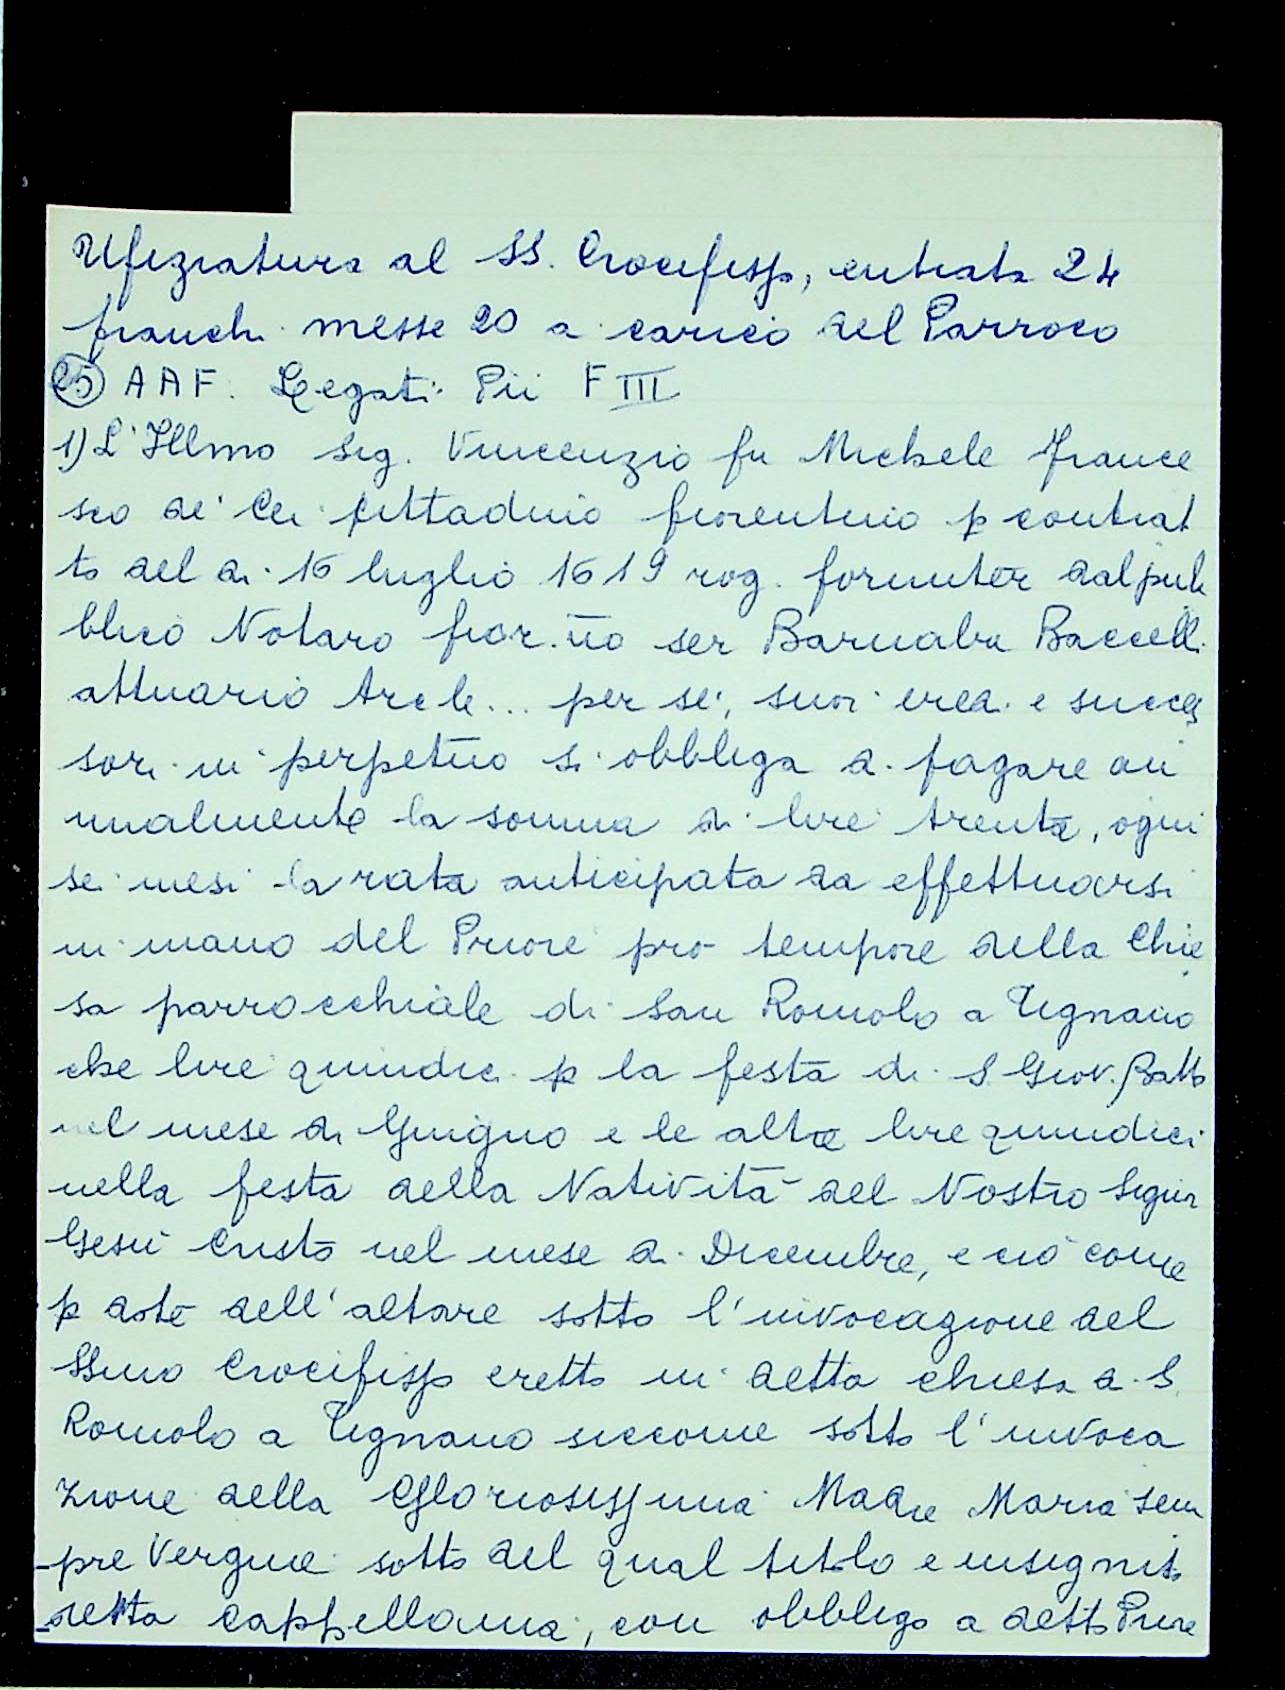 Ufiziatura al SS. Crocifisso, entrata 24
franchi messe 20 a carico del Parroco
25 AAF. Legati Pii F III
1) L'Illmo Sig. Vincenzio fu Michele France
sco de' Cei cittadino fiorentino p contrat
to del di 16 luglio 1619 rog. formiter dal pub
blico Notaro fior.no ser Barnaba Baccelli
attuario Arcle... per sé, suoi eredi e succes
sori in perpetuo si obbliga di pagare an
nualmente la somma di lire trenta, ogni
sei mesi la rata anticipata da effettuarsi
in mano del Priore pro tempore della Chie
sa parrocchiale di San Romolo a Tignano
che lire quindici p la festa di S. Giov. Batta
nel mese di Giugno e le altre lire quindici
nella festa della Natività del Nostro Signor
Gesù Cristo nel mese di Dicembre, e ciò come
p dote dell'altare sotto l'invocazione del
SSmo Crocifisso eretto in detta chiesa di S.
Romolo a Tignano siccome sotto l'invoca
zione della Gloriosissima Madre Maria sem
pre Vergine sotto del qual titolo e insignita
detta cappellania, con obbligo a detto Priore